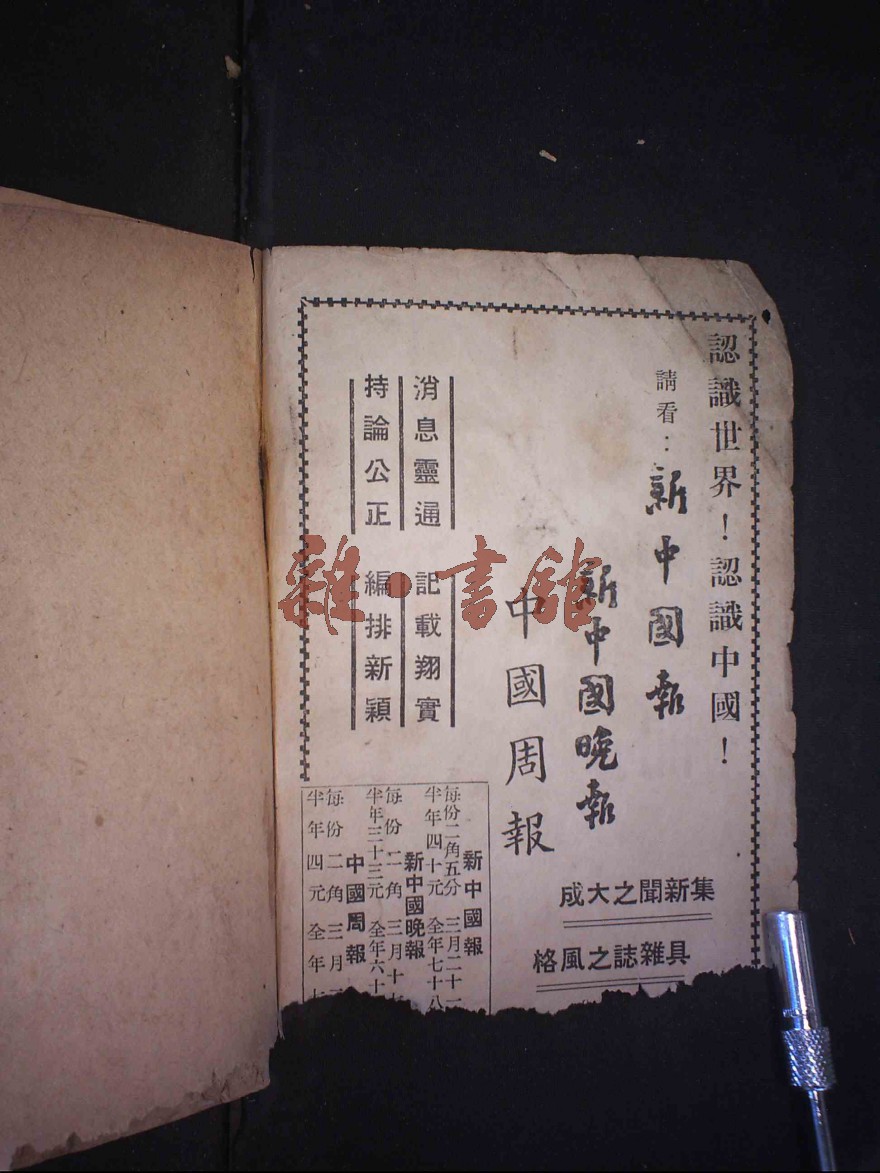 認識世界！認識中國！
請看：新中國報
新中國晚報
中國周報
集新聞之大成
具雜誌之風格
消息靈通 記載翔實
持論公正 編排新穎
新中國報
每份二角五分 三月二十一
半年四十元 全年七十八
新中國晚報
每份二角 三月十七
半年三十三元 全年六十
中國周報
每份二角 三月二
半年四元 全年
雜·書館